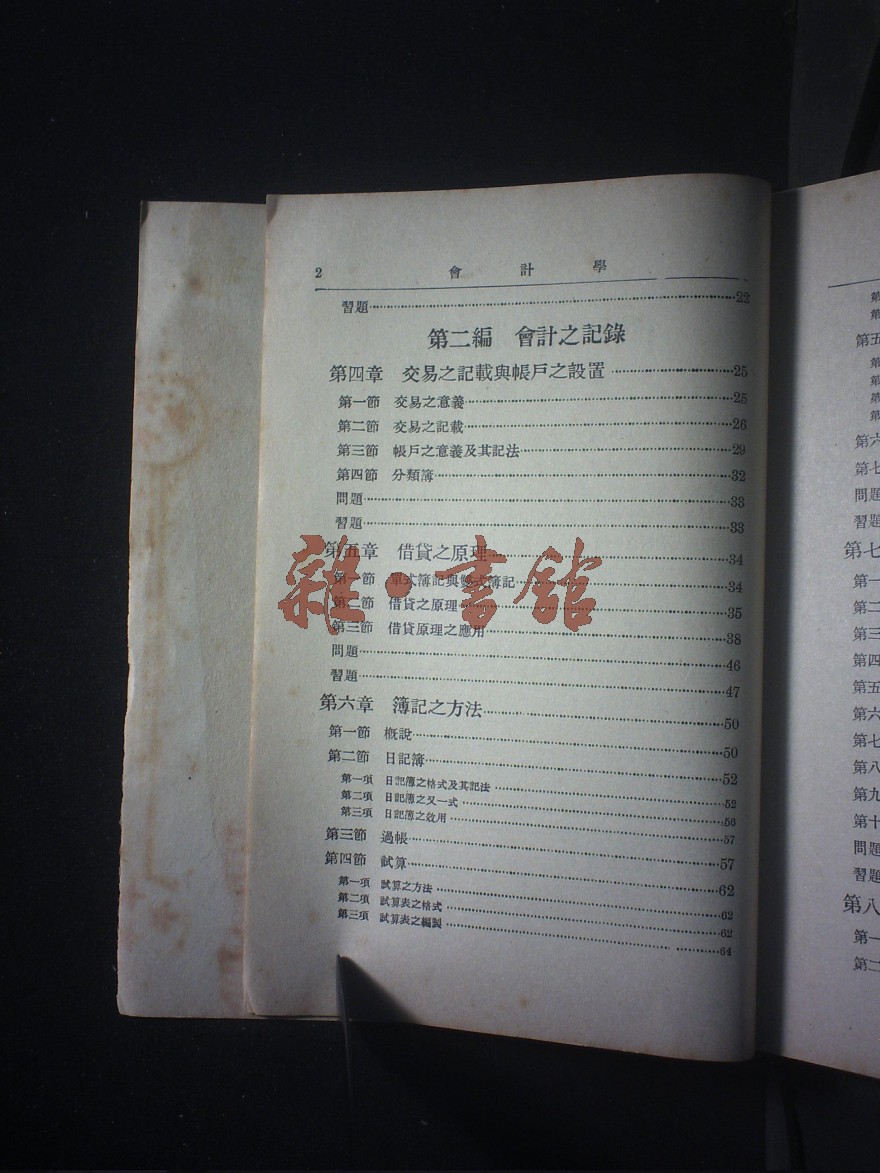 2 會計學
習題……22
第二編 會計之記錄
第四章 交易之記載與帳戶之設置……25
第一節 交易之意義……25
第二節 交易之記載……26
第三節 帳戶之意義及其記法……29
第四節 分類簿……32
問題……33
習題……33
第五章 借貸之原理……34
第一節 單式簿記與雙式簿記……34
第二節 借貸之原理……35
第三節 借貸原理之應用……38
問題……46
習題……47
第六章 簿記之方法……50
第一節 概說……50
第二節 日記簿……52
第一項 日記簿之格式及其記法……52
第二項 日記簿之又一式……56
第三項 日記簿之效用……57
第三節 過帳……57
第四節 試算……62
第一項 試算之方法……62
第二項 試算表之格式……62
第三項 試算表之編製……64
雜·書館
第
第
第五
第
第
第
第
第六
第七
問題
習題
第七
第一
第二
第三
第四
第五
第六
第七
第八
第九
第十
問題
習題
第八
第一
第二